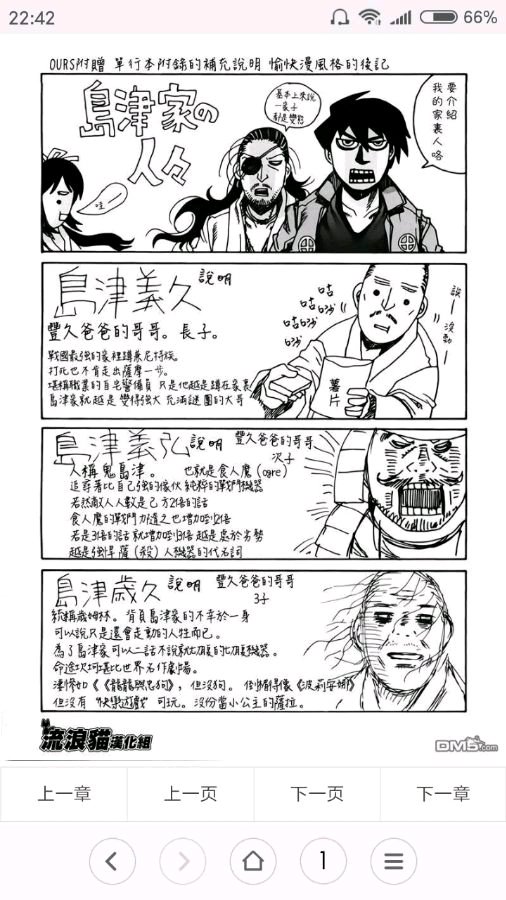 22:42
66%
OURS附贈 單行本附錄的補充說明 愉快漫風格的後記
島津家の
人々
要介紹
我的家裏人咯
基本上來說
一家子
都是變態
哇—
島津義久 說明
豐久爸爸的哥哥。長子。
戰國最強的家裡蹲兼尼特族。
打死也不肯走出薩摩一步。
堪稱職業的自宅警備員 只是他越是蹲在家裏
島津家就越是 變得強大 充滿謎團的大哥
咕
咕吵
咕吵
吵
誒—沒勁—
薯片
島津義弘 說明 豐久爸爸的哥哥
次子
人稱鬼島津。 也就是食人魔(ogre)
追尋著比自己強的傢伙 純粹的戰鬥機器
若然敵人人數是己方2倍的話
食人魔的戰鬥力隨之也增加啦2倍
若是3倍的話 就增加啦3倍 越是處於劣勢
越是強悍 薩(殺)人機器的代名詞
島津歲久 說明 豐久爸爸的哥哥
3子
統稱歲姆林。背負島津家的不幸於一身
可以說只是還會走動的人牲而已。
為了島津家可以二話不說就切腹的切腹機器。
命途坎坷堪比世界名作劇場。
但沒有"快樂遊戲"可玩。沒份當小公主的薩拉。
流浪貓漢化組
DM5.com
上一章
上一页
下一页
下一章
1